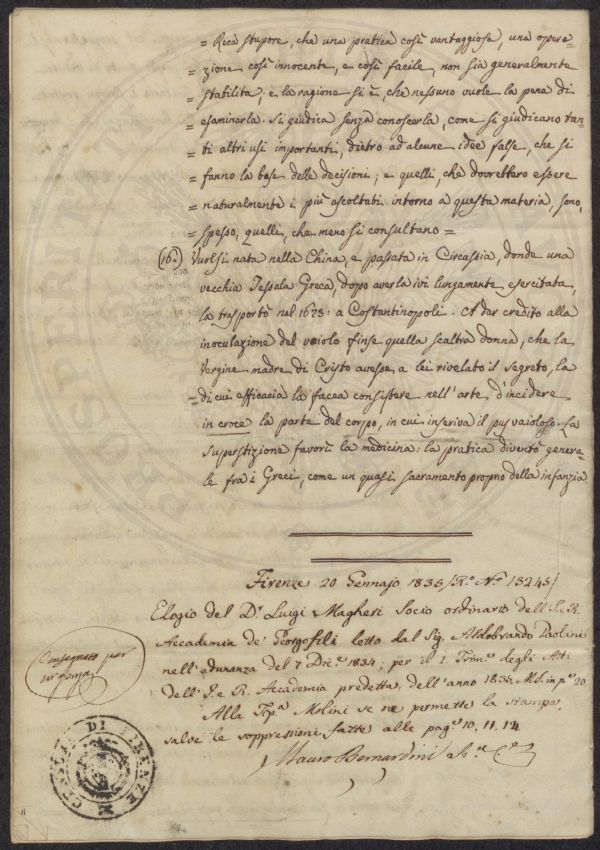 = Reca stupore, che una pratica così vantaggiosa, una opera=
= zione così innocente, e così facile, non sia generalmente
= stabilita; e la ragione si è, che nessuno vuole la pena di
= esaminarla. Si giudica senza conoscerla, come si giudicano tan=
= ti altri usi importanti, dietro ad alcune idee false, che si
= fanno la base delle decisioni; e quelli, che dovrebbero essere
= naturalmente i più ascoltati intorno a questa materia, sono,
= spesso, quelli, che meno si consultano =
(16.) Vuolsi nata nella China, e passata in Circassia, donde una
vecchia Tessala Greca, dopo averla ivi lungamente esercitata,
la trasportò nel 1673: a Costantinopoli. A dar credito alla
inoculazione del vaiolo finse quella scaltra donna, che la
Vergine madre di Cristo avesse a lei rivelato il segreto, la
= di cui efficacia la facea consistere nell'arte d'incidere
in croce la parte del corpo, in cui inseriva il pus vaioloso. La
superstizione favorì la medicina: la pratica diventò genera=
le fra i Greci, come un quasi sacramento proprio della infanzia.
Firenze 20 Gennajo 1835/R.º N.º 13245/
Elogio del D.r Luigi Magheri Socio ordinario dell'I. e R.
Accademia de' Georgofili letto dal Sig. Aldobrando Paolini
nell'adunanza del 7 Dic.e 1834; per il I. Trim.e degli Atti
dell'I. e R. Accademia predetta, dell'anno 1835. Ms. in p.e 20
Alla Tip.a Molini se ne permette la stampa,
salve le soppressioni fatte alle pag.e 10. 11. 14.
Mauro Bernardini
Consegnato per
CENSURA DI FIRENZE